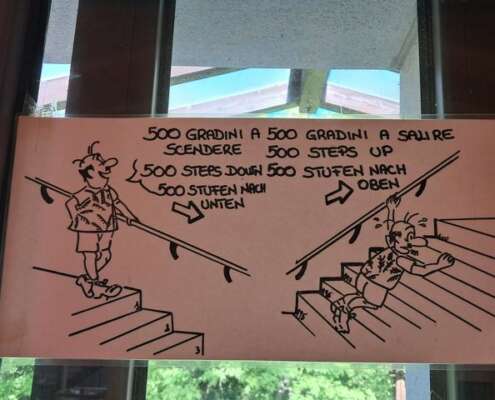 500 GRADINI A
SCENDERE
500 STEPS DOWN
500 STUFEN NACH
UNTEN
500 GRADINI A SALIRE
500 STEPS UP
500 STUFEN NACH
OBEN
1
2
3